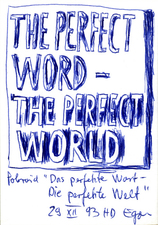 THE PERFECT
WORD –
THE PERFECT
WORLD
"Das perfekte Wort –
Die perfekte Welt"
29 XII 93 HD